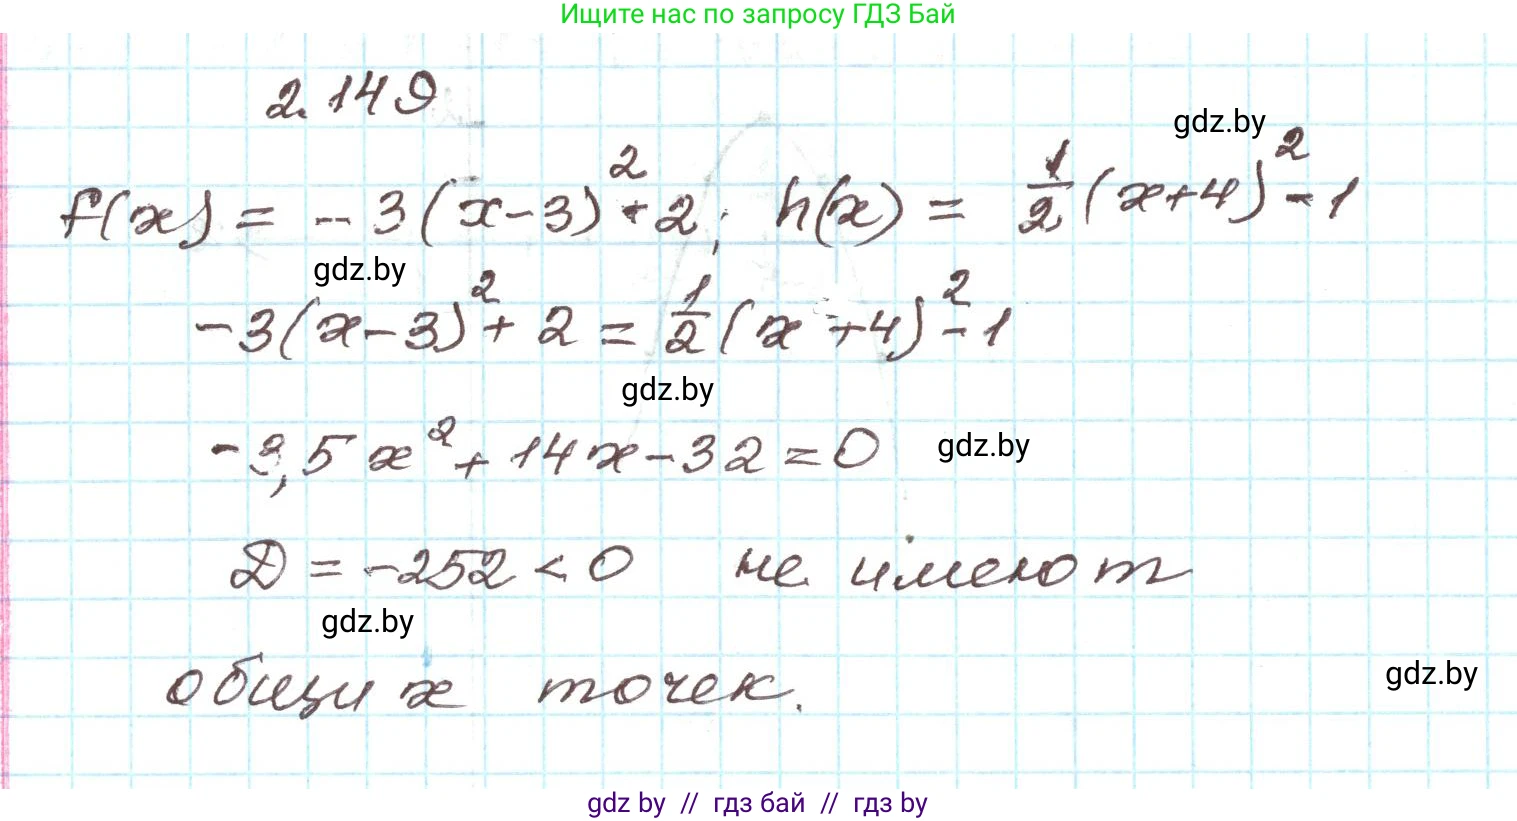 Ищите нас по запросу ГДЗ Бай
2.149
gdz.by
f(x) = -3(x-3)²+2; h(x) = 1/2(x+4)²-1
gdz.by
-3(x-3)²+2 = 1/2(x+4)²-1
gdz.by
-3,5x²+14x-32=0
gdz.by
D = -252 < 0 не имеют
gdz.by
общих точек.
gdz.by
gdz by // гдз бай // гдз by